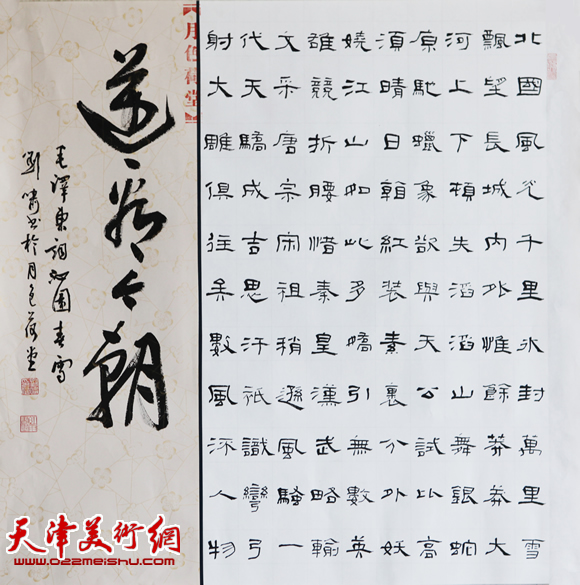 北國風光千里冰封萬里雪
飄望長城內外惟餘莽莽大
河上下頓失滔滔山舞銀蛇
原馳蠟象欲與天公試比高
須晴日看紅裝素裹分外妖
嬈江山如此多嬌引無數英
雄競折腰惜秦皇漢武略輸
文采唐宗宋祖稍遜風騷一
代天驕成吉思汗祇識彎弓
射大雕俱往矣數風流人物
還看今朝
毛澤東詞沁園春雪
劉書於月色荷堂
月色荷堂
天津美術網
www.022meishu.com